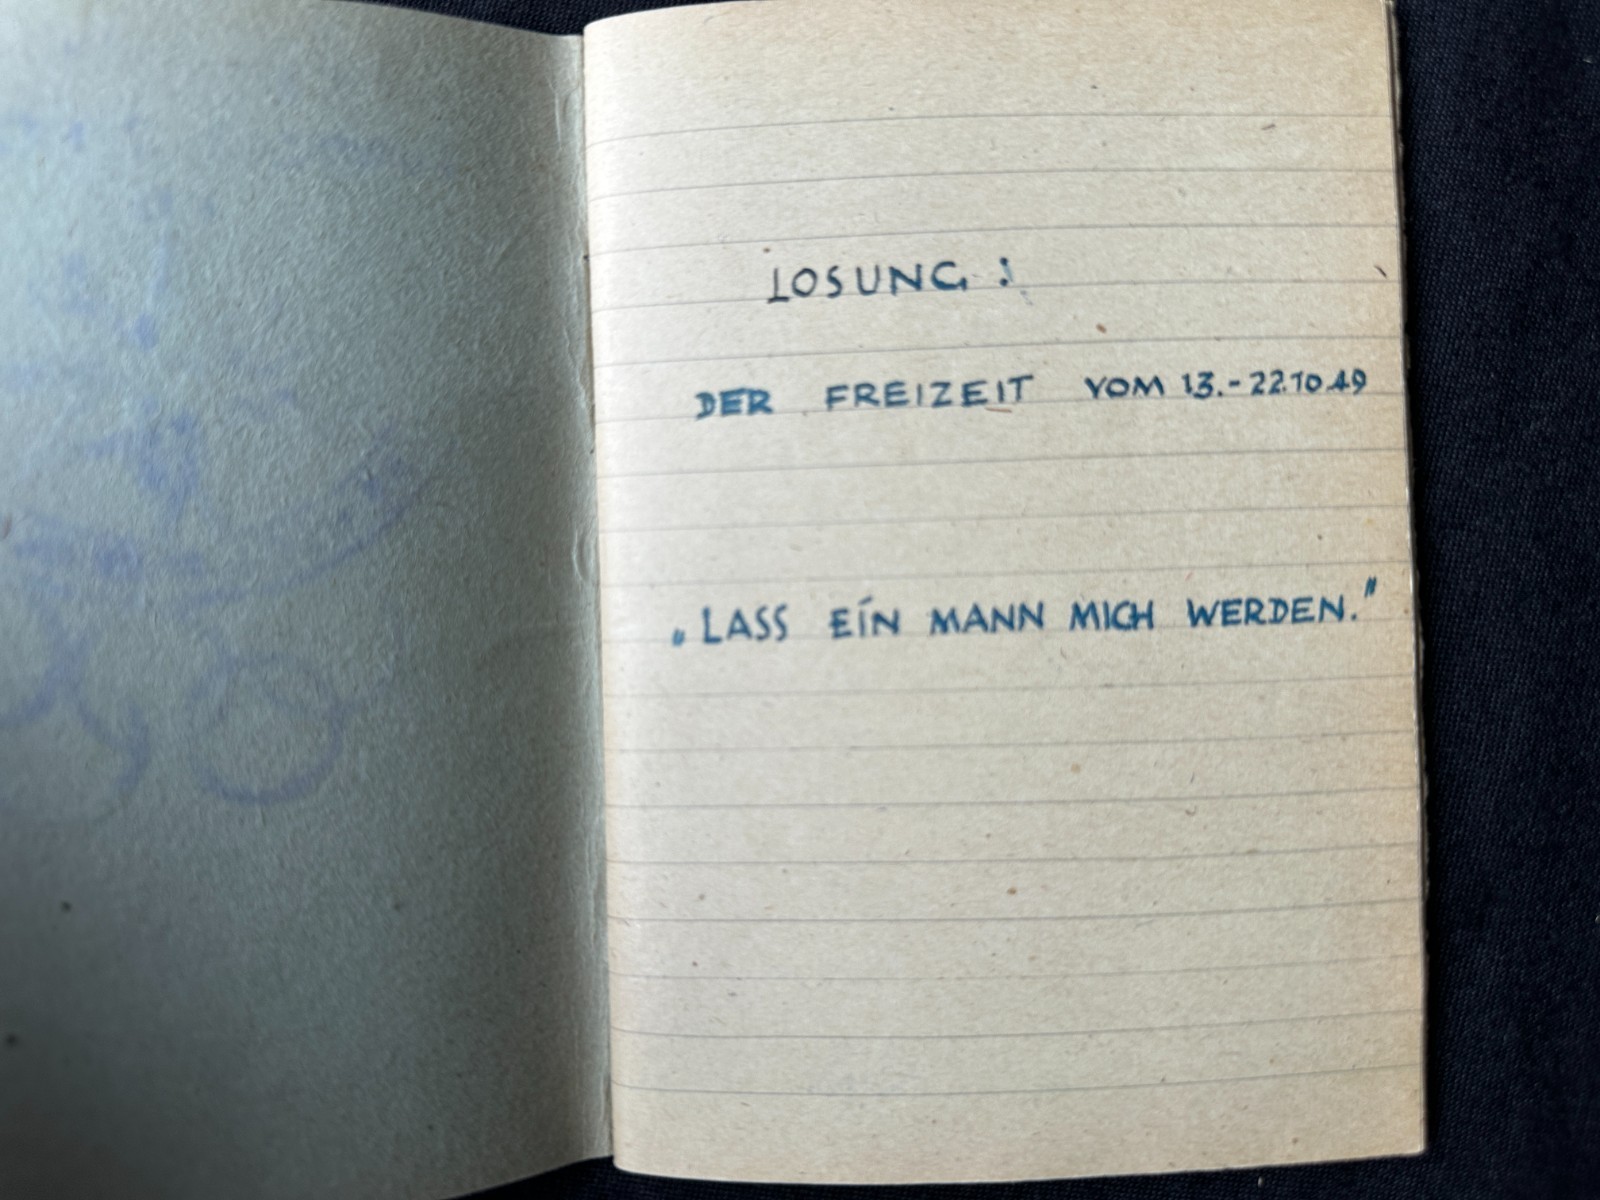 LOSUNG :
DER FREIZEIT VOM 13.-22.10.49
„LASS EIN MANN MICH WERDEN."